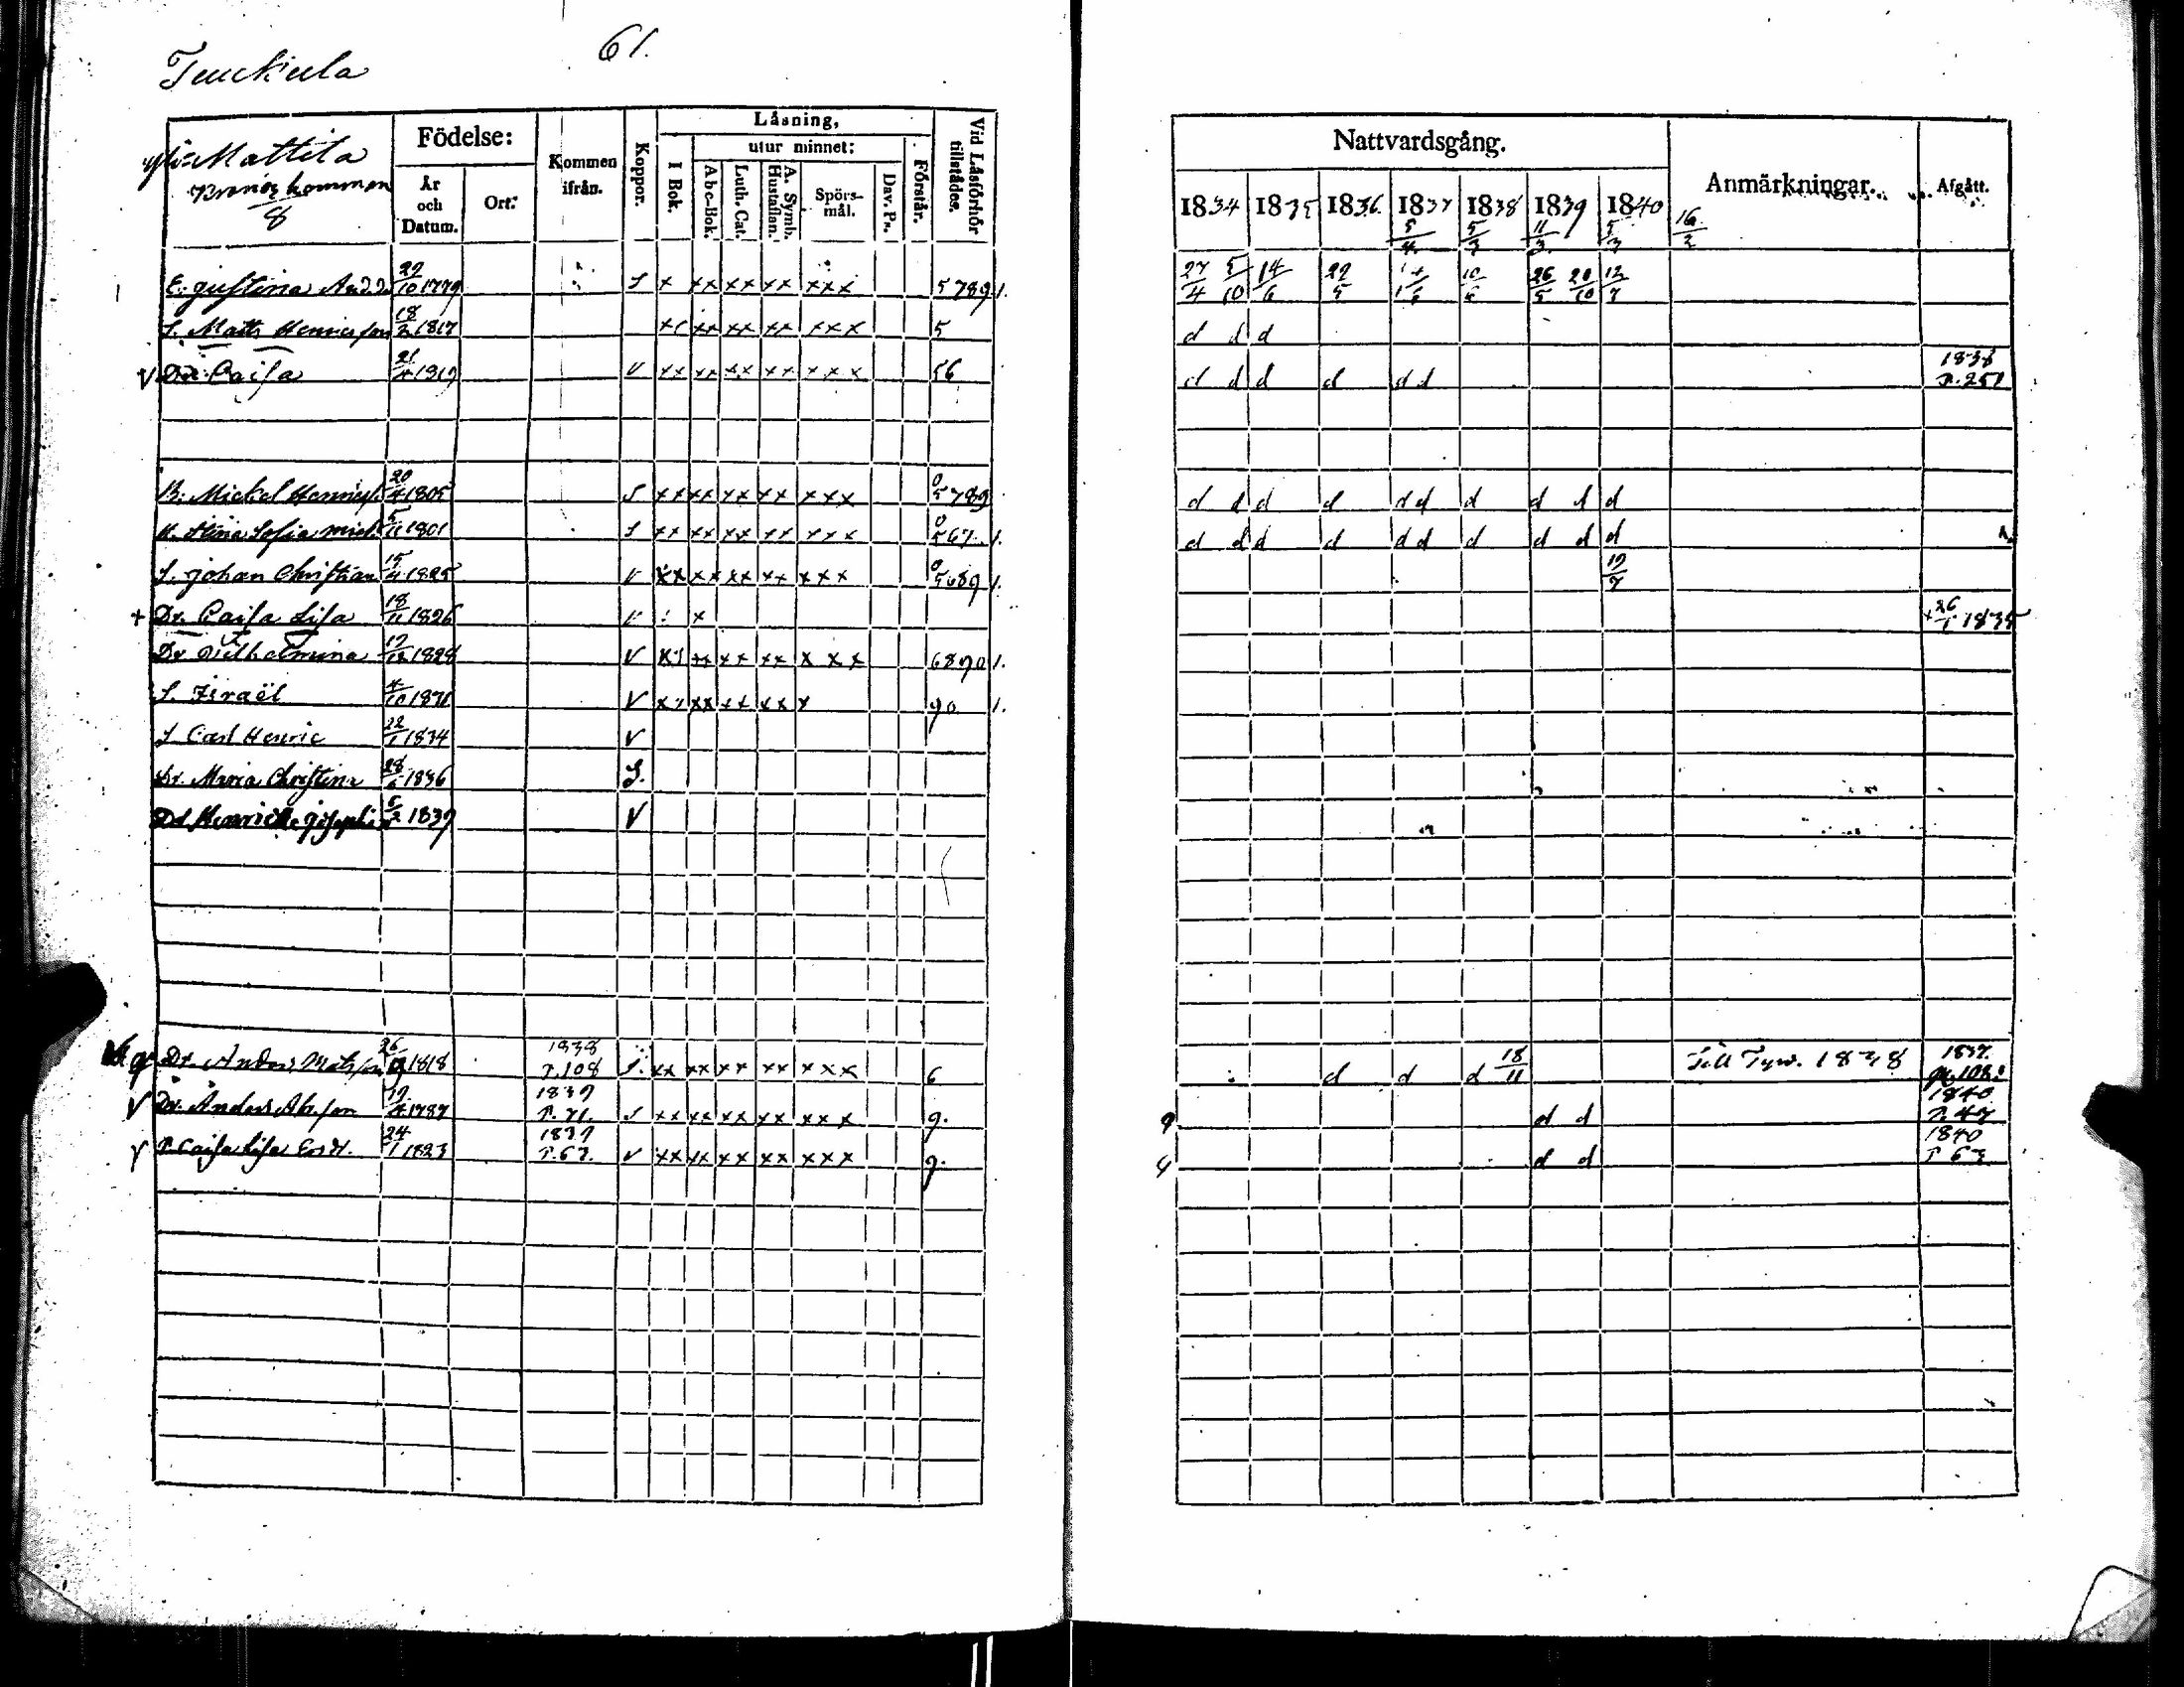 Tuckiala
61.
Mattila
8
Födelse:
År och Datum.
Ort:
Kommen ifrån.
Koppor.
Läsning,
I Bok.
utur minnet:
Abc-Bok.
Luth. Cat.
A. Symb. Hustaflan.
Spörs-mål.
Dav. Ps.
Förstår.
Vid Läsförhör tillstädes.
Nattvardsgång.
1834 1835 1836 1837 1838 1839 1840
5/3 11/3 5/3 16/2
Anmärkningar.
Afgått.
E. Justina And.D. 1779 S x xx xx xx xxx 5789 1. 27/4 5/10 14/6 22/5 10/6 26/5 20/10 12/7
S. Matts Henricsson 18/2 1817 xx xx xx xxx 5 d d d
V Dr. Caisa 21/4 1819 V xx xx xx xx xxx 56 d d d d d d 1838 P. 251
B. Mickel Henrics. 20/4 1805 S xx xx xx xx xxx 0 5789 d d d d d d d d d d
H. Stina Sofia Mick. 5/11 1801 S xx xx xx xx xxx 0 567 1. d d d d d d d d d d
S. Johan Christian 15/4 1825 V xx xx xx xx xxx 0 5689 1. 19/7
+ Dr. Caisa Lisa 18/11 1826 V x + 26/1 1835
Dr Wilhelmina 1828 V xx xx xx xxx 6890 1.
S. Israël 4/10 1831 V xx xx xx x 90 1.
S Carl Henric 22/1 1834 V
Dr. Maria Christina 28/6 1836 S.
Dr Henrica Josephin 1839 V
Dr. Anders Matsson 26/9 1818 1838 P.108 S. xx xx xx xx xxx 6 d d d 18/11 Till Tyrv. 1838 1837. P.108.
V Dr. Anders Abrson 19/4 1787 1839 P. 71. S xx xx xx xx xxx 9. d d 1840 P. 47
V P. Caisa Lisa Ersd. 24/1 1823 1839 P.63. V xx xx xx xx xxx 9. d d 1840 P 63